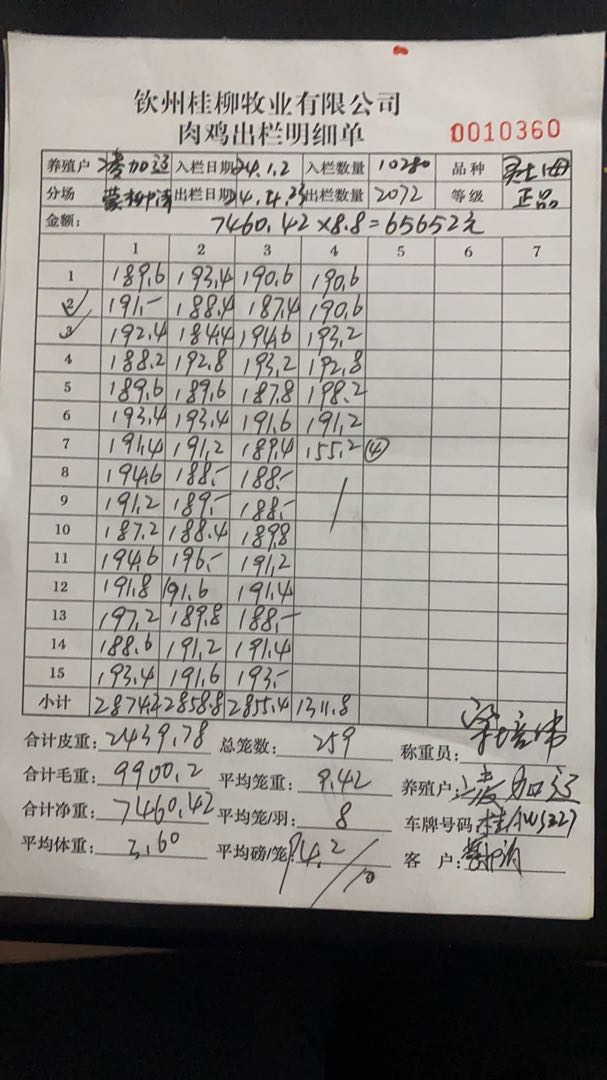 钦州桂柳牧业有限公司
肉鸡出栏明细单 0010360
养殖户 加运 入栏日期 24.1.2 入栏数量 10280 品种
分场 出栏日期 24.4.23 出栏数量 2072 等级 正品
金额: 7460.42×8.8=65652元
1 2 3 4 5 6 7
1 189.6 193.4 190.6 190.6
2 191.- 188.4 187.4 190.6
3 192.4 184.4 194.6 193.2
4 188.2 192.8 193.2 192.8
5 189.6 189.6 187.8 198.2
6 193.4 193.4 191.6 191.2
7 191.4 191.2 189.4 155.2 ④
8 194.6 188.- 188.-
9 191.2 189.- 188.-
10 187.2 188.4 189.8
11 194.6 196.- 191.2
12 191.8 191.6 191.4
13 197.2 189.8 188.-
14 188.6 191.2 191.4
15 193.4 191.6 193.-
小计 2874.2 2858.8 2855.4 1311.8
合计皮重: 2439.78 总笼数: 259 称重员: 梁培伟
合计毛重: 9900.2 平均笼重: 9.42 养殖户: 加运
合计净重: 7460.42 平均笼/羽: 8 车牌号码:
平均体重: 3.60 平均磅/笼: 94.2/10 客 户: